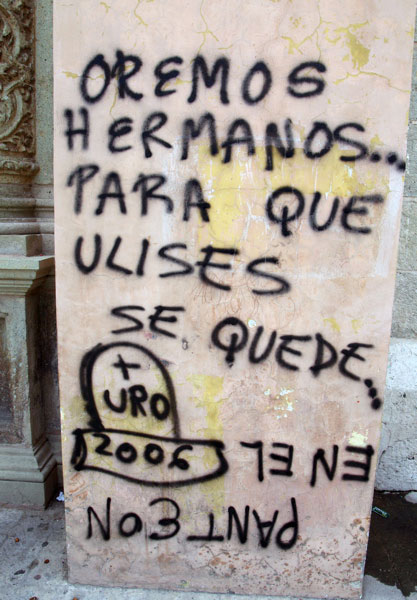 OREMOS
HERMANOS...
PARA QUE
ULISES
SE QUEDE...
+
URO
2006
EN EL
PANTEON